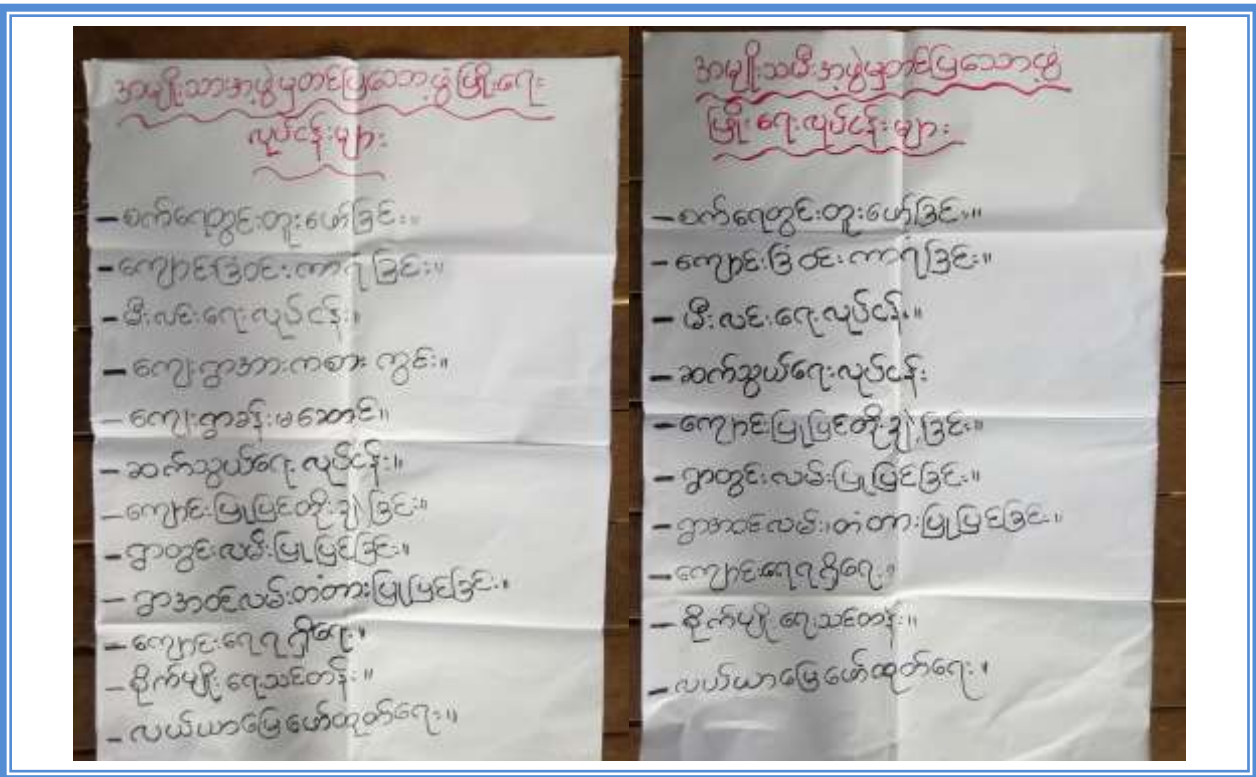 အမျိုးသားအဖွဲ့မှတင်ပြသောဖွံ့ဖြိုးရေး
လုပ်ငန်းများ
– စက်ရေတွင်းတူးဖော်ခြင်း။
– ကျောင်းခြံဝင်းကာရံခြင်း။
– မီးလင်းရေးလုပ်ငန်း။
– ကျေးရွာအားကစားကွင်း။
– ကျေးရွာခန်းမဆောင်။
– ဆက်သွယ်ရေးလုပ်ငန်း။
– ကျောင်းပြုပြင်တိုးချဲ့ခြင်း။
– ရွာတွင်းလမ်းပြုပြင်ခြင်း။
– ရွာအဝင်လမ်းတံတားပြုပြင်ခြင်း။
– ကျောင်းရေရရှိရေး။
– စိုက်မျိုးရေးသင်တန်း။
– လယ်ယာမြေဖော်ထုတ်ရေး။
အမျိုးသမီးအဖွဲ့မှတင်ပြသောဖွံ့
ဖြိုးရေးလုပ်ငန်းများ
– စက်ရေတွင်းတူးဖော်ခြင်း။
– ကျောင်းခြံဝင်းကာရံခြင်း။
– မီးလင်းရေးလုပ်ငန်း။
– ဆက်သွယ်ရေးလုပ်ငန်း
– ကျောင်းပြုပြင်တိုးချဲ့ခြင်း။
– ရွာတွင်းလမ်းပြုပြင်ခြင်း။
– ရွာအဝင်လမ်း၊တံတားပြုပြင်ခြင်း။
– ကျောင်းရေရရှိရေး။
– စိုက်မျိုးရေးသင်တန်း။
– လယ်ယာမြေဖော်ထုတ်ရေး။